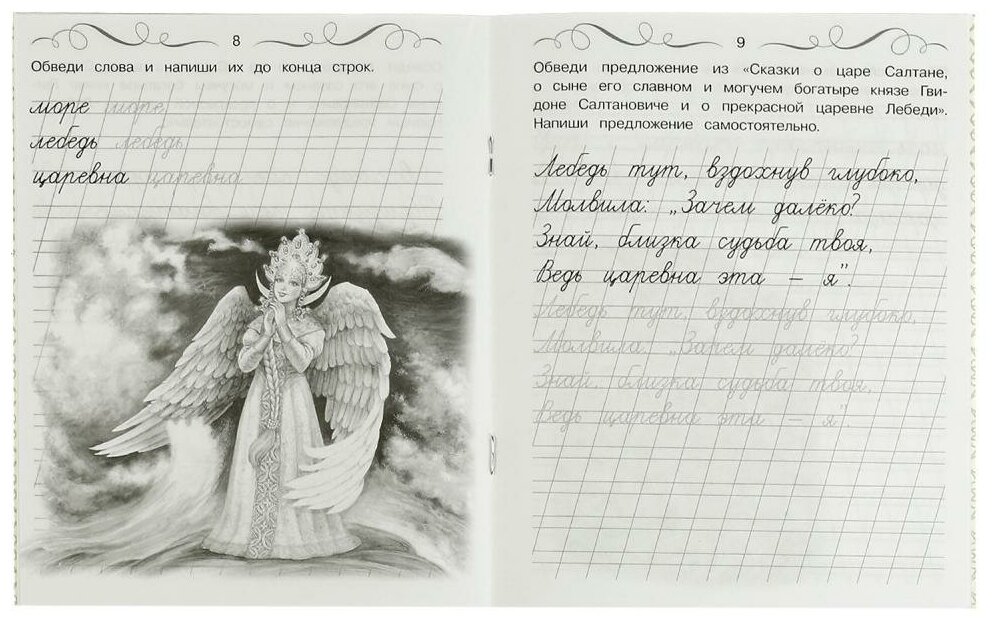 8
Обведи слова и напиши их до конца строк.
море море
лебедь лебедь
царевна царевна
9
Обведи предложение из «Сказки о царе Салтане,
о сыне его славном и могучем богатыре князе Гви-
доне Салтановиче и о прекрасной царевне Лебеди».
Напиши предложение самостоятельно.
Лебедь тут, вздохнув глубоко,
Молвила: „Зачем далёко?
Знай, близка судьба твоя,
Ведь царевна эта – я".
Лебедь тут, вздохнув глубоко,
Молвила: „Зачем далёко?
Знай, близка судьба твоя,
Ведь царевна эта – я".